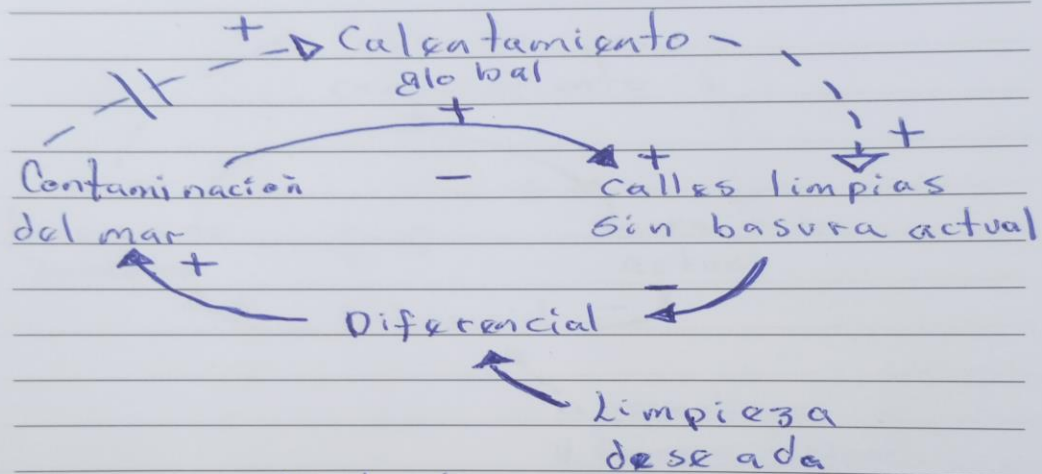 +
Calentamiento
global
+
+
+
Contaminación
del mar
-
Calles limpias
sin basura actual
+
-
Diferencial
Limpieza
deseada